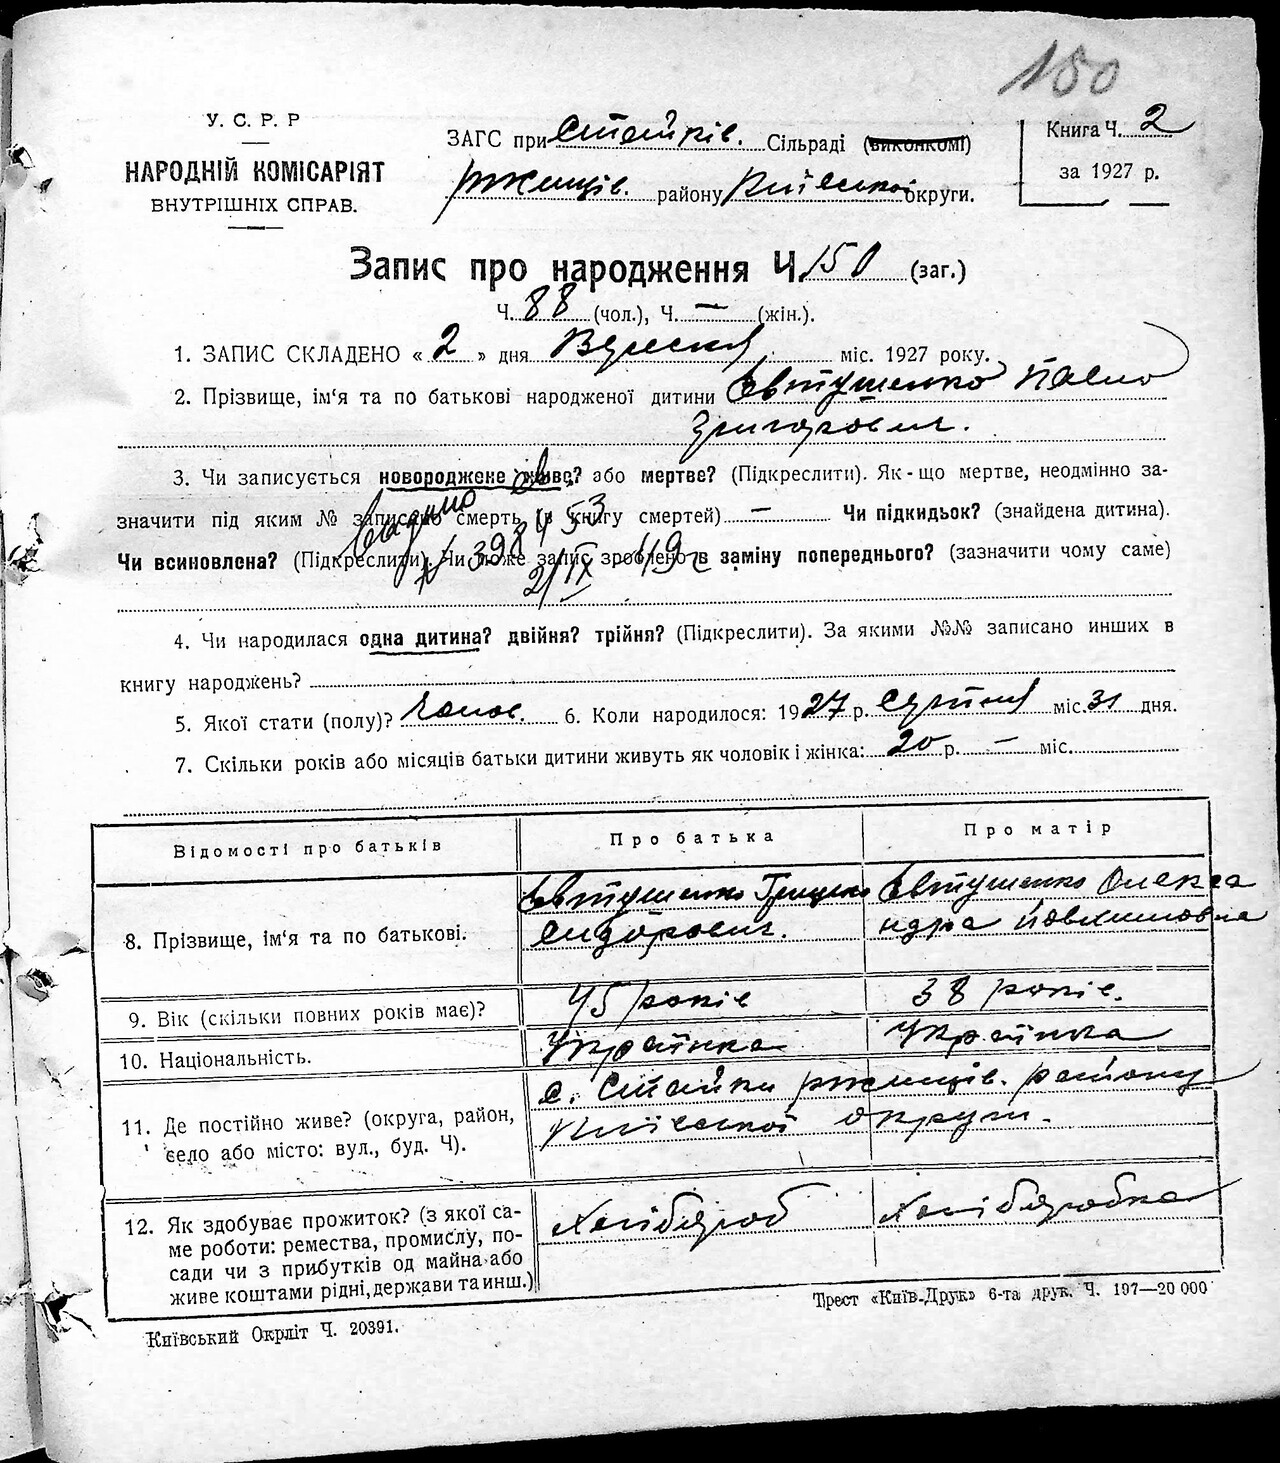 150
У. С. Р. Р
НАРОДНІЙ КОМІСАРІЯТ
ВНУТРІШНІХ СПРАВ.
ЗАГС при Стайків. Сільраді (виконкомі)
ржищів. району Київської округи.
Книга Ч. 2
за 1927 р.
Запис про народження Ч. 150 (заг.)
Ч. 88 (чол.), Ч. — (жін.).
1. ЗАПИС СКЛАДЕНО « 2 » дня Вересня міс. 1927 року.
2. Прізвище, ім'я та по батькові народженої дитини Євтушенко Павло
Григорович.
3. Чи записується новороджене живе? або мертве? (Підкреслити). Як-що мертве, неодмінно за-
значити під яким № записано смерть (в книгу смертей) — Чи підкидьок? (знайдена дитина).
Чи всиновлена? (Підкреслити). Чи може запис зроблено в заміну попереднього? (зазначити чому саме)
4. Чи народилася одна дитина? двійня? трійня? (Підкреслити). За якими №№ записано инших в
книгу народжень?
5. Якої стати (полу)? Чолов. 6. Коли народилося: 1927 р. Серпня міс. 31 дня.
7. Скільки років або місяців батьки дитини живуть як чоловік і жінка: 20 р. — міс.
Відомості про батьків Про батька Про матір
8. Прізвище, ім'я та по батькові. Євтушенко Грицько Сидорович. Євтушенко Олекса ндра Йовхимовна
9. Вік (скільки повних років має)? 45 років 38 років.
10. Національність. Українка Українка
11. Де постійно живе? (округа, район, с. Стайки ржищів. району
село або місто: вул., буд. Ч). Київської округи.
12. Як здобуває прожиток? (з якої са- Хлібороб Хліборобка
ме роботи: ремества, промислу, по-
сади чи з прибутків од майна або
живе коштами рідні, держави та инш.)
Київський Окрліт Ч. 20391.
Трест «Київ-Друк» 6-та друк. Ч. 197—20 000